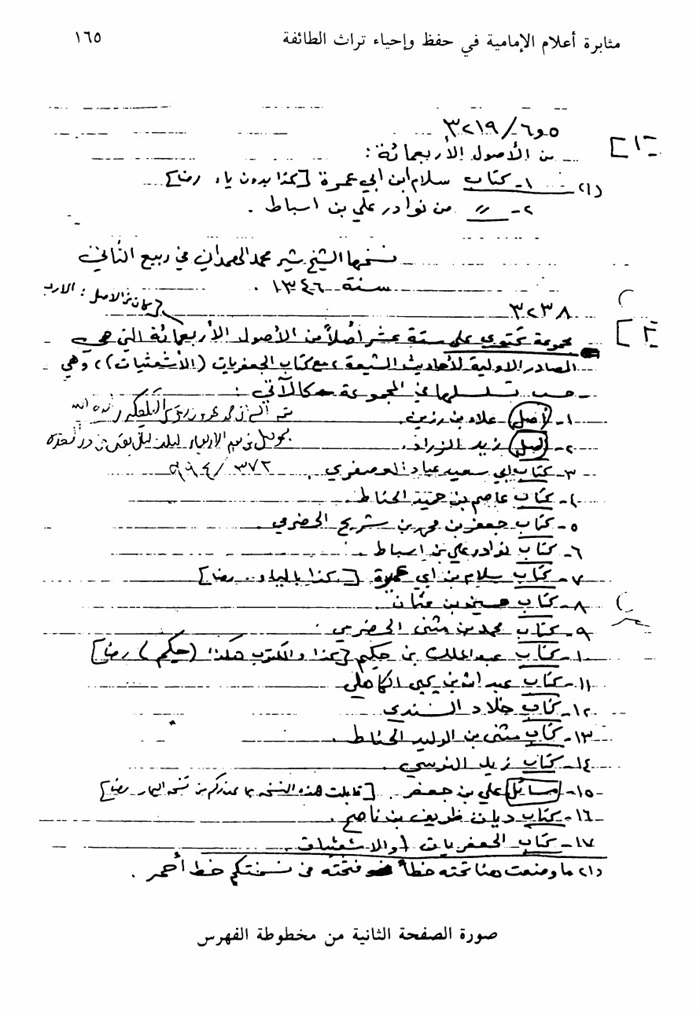 مثابرة أعلام الإمامية في حفظ وإحياء تراث الطائفة ١٦٥
٥و٦/٣٢١٩
[١]
من الأصول الأربعمائة :
(١) ١- كتاب سلام ابن ابي عمرة [كذا بدون ياء رضا]
٢- ٫٫ من نوادر علي بن اسباط .
نسخها الشيخ شير محمد الهمداني في ربيع الثاني
سنة ١٣٤٦ .
[كان في الاصل : الارب
٣٢٣٨
[٢]
مجموعة تحتوي على ستة عشر أصلاً من الأصول الأربعمائة التي هي
المصادر الاولية للأحاديث الشيعة ، مع كتاب الجعفريات (الأشعثيات) ، وهي
حسب تسلسلها في المجموعة كالآتي :
١- أصل علاء بن رزين .
٢- اصل زيد الزراد .
٣- كتاب ابي سعيد عباد العصفري ٣٧٢/
٤- كتاب عاصم بن حميد الحناط .
٥- كتاب جعفر بن محمد بن شريح الحضرمي .
٦- كتاب نوادر علي بن اسباط .
٧- كتاب سلام بن ابي عميرة [كذا بالياء .. رضا]
٨- كتاب حسين بن عثمان .
٩- كتاب محمد بن مثنى الحضرمي .
١٠- كتاب عبد الملك بن حكيم [كذا والمكتوب هكذا (حيكم) رضا]
١١- كتاب عبد الله بن يحيى الكاهلي
١٢- كتاب خلاد السندي
١٣- كتاب مثنى بن الوليد الحناط .
١٤- كتاب زيد النرسي .
١٥- مسائل علي بن جعفر . [قابلت هذه النسخة بما عندكم من نسخة البحار رضا]
١٦- كتاب ديات ظريف بن ناصح .
١٧- كتاب الجعفريات (والاشعثيات .
(١) ما وضعت هنا تحته خطأ فتحته في نسختكم خط أحمر .
صورة الصفحة الثانية من مخطوطة الفهرس